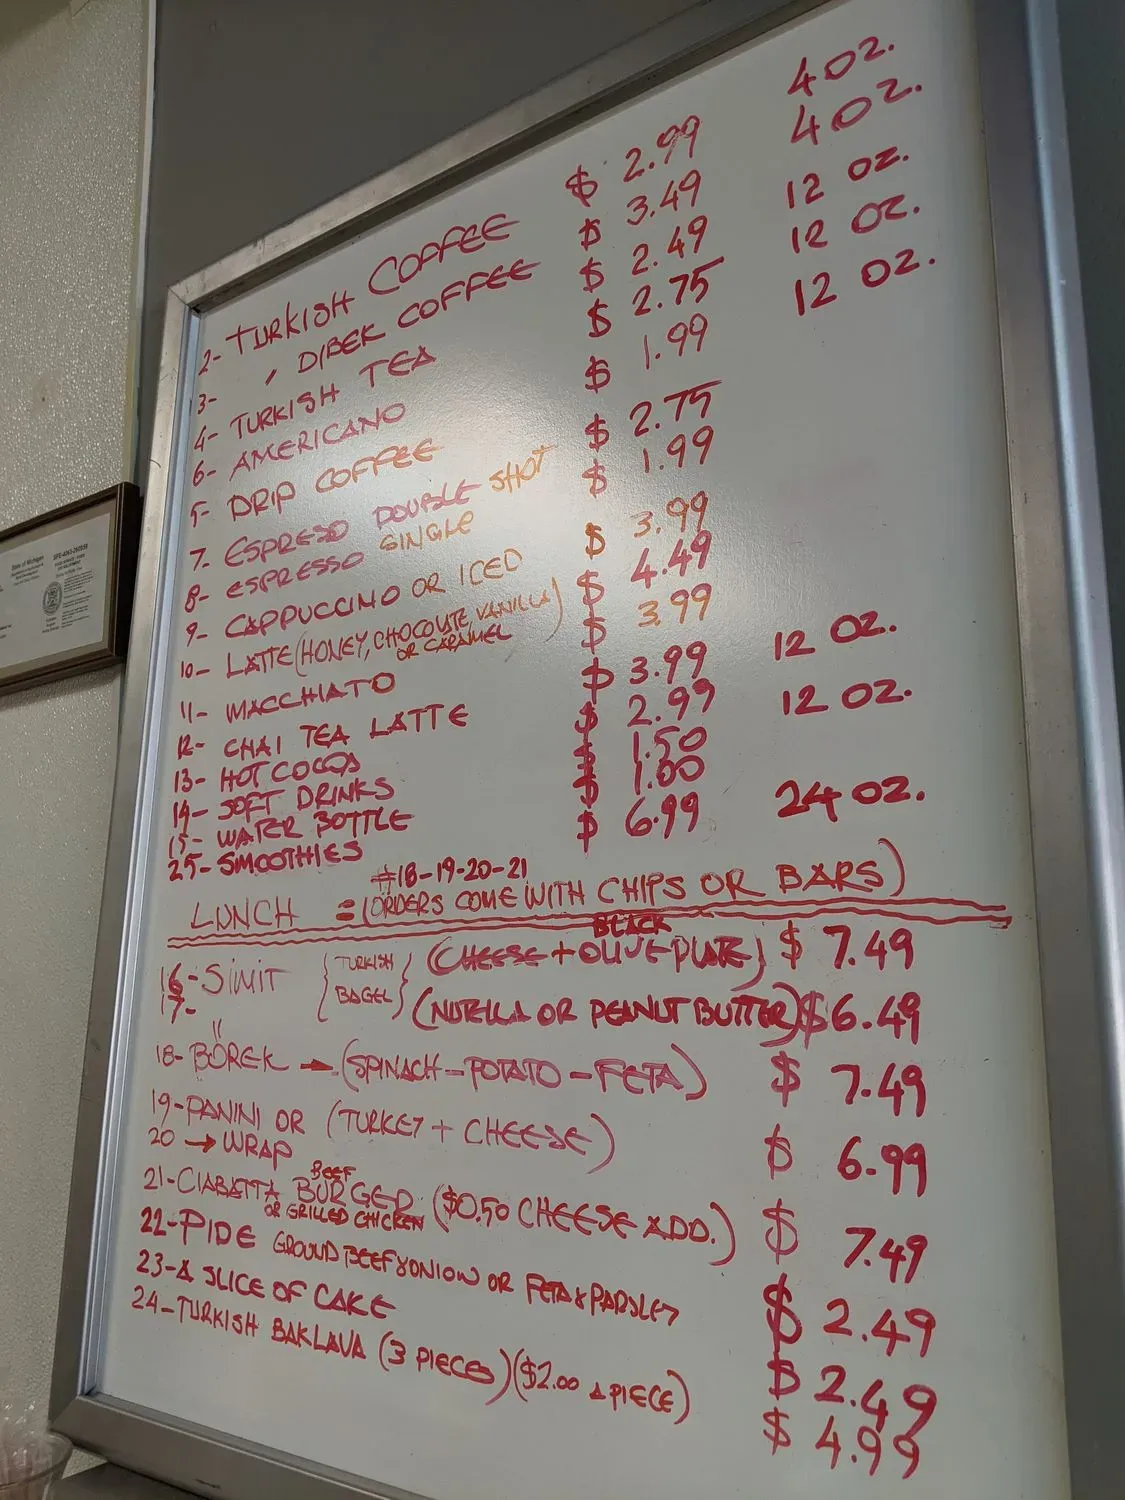 2- TURKISH COFFEE $ 2.99 4 OZ.
3- " DIBEK COFFEE $ 3.49 4 OZ.
4- TURKISH TEA $ 2.49 12 OZ.
6- AMERICANO $ 2.75 12 OZ.
5- DRIP COFFEE $ 1.99 12 OZ.
7- ESPRESO DOUBLE SHOT $ 2.75
8- ESPRESSO SINGLE $ 1.99
9- CAPPUCCINO OR ICED $ 3.99
10- LATTE (HONEY, CHOCOLATE, VANILLA OR CARAMEL) $ 4.49
11- MACCHIATO $ 3.99
12- CHAI TEA LATTE $ 3.99 12 OZ.
13- HOT COCOA $ 2.99 12 OZ.
14- SOFT DRINKS $ 1.50
15- WATER BOTTLE $ 1.00
25- SMOOTHIES $ 6.99 24 OZ.
#18-19-20-21
LUNCH = (ORDERS COME WITH CHIPS OR BARS)
BLACK
16- SIMIT {TURKISH BAGEL} (CHEESE + OLIVE PLATE) $ 7.49
17- " (NUTELLA OR PEANUT BUTTER) $ 6.49
18- BÖREK → (SPINACH - POTATO - FETA) $ 7.49
19- PANINI OR (TURKEY + CHEESE) $ 6.99
20 → WRAP
21- CIABATTA BEEF BURGER OR GRILLED CHICKEN ($0.50 CHEESE ADD.) $ 7.49
22- PIDE GROUND BEEF & ONION OR FETA & PARSLEY $ 2.49
23- A SLICE OF CAKE $ 2.49
24- TURKISH BAKLAVA (3 PIECES) ($2.00 A PIECE) $ 4.99
State of Michigan